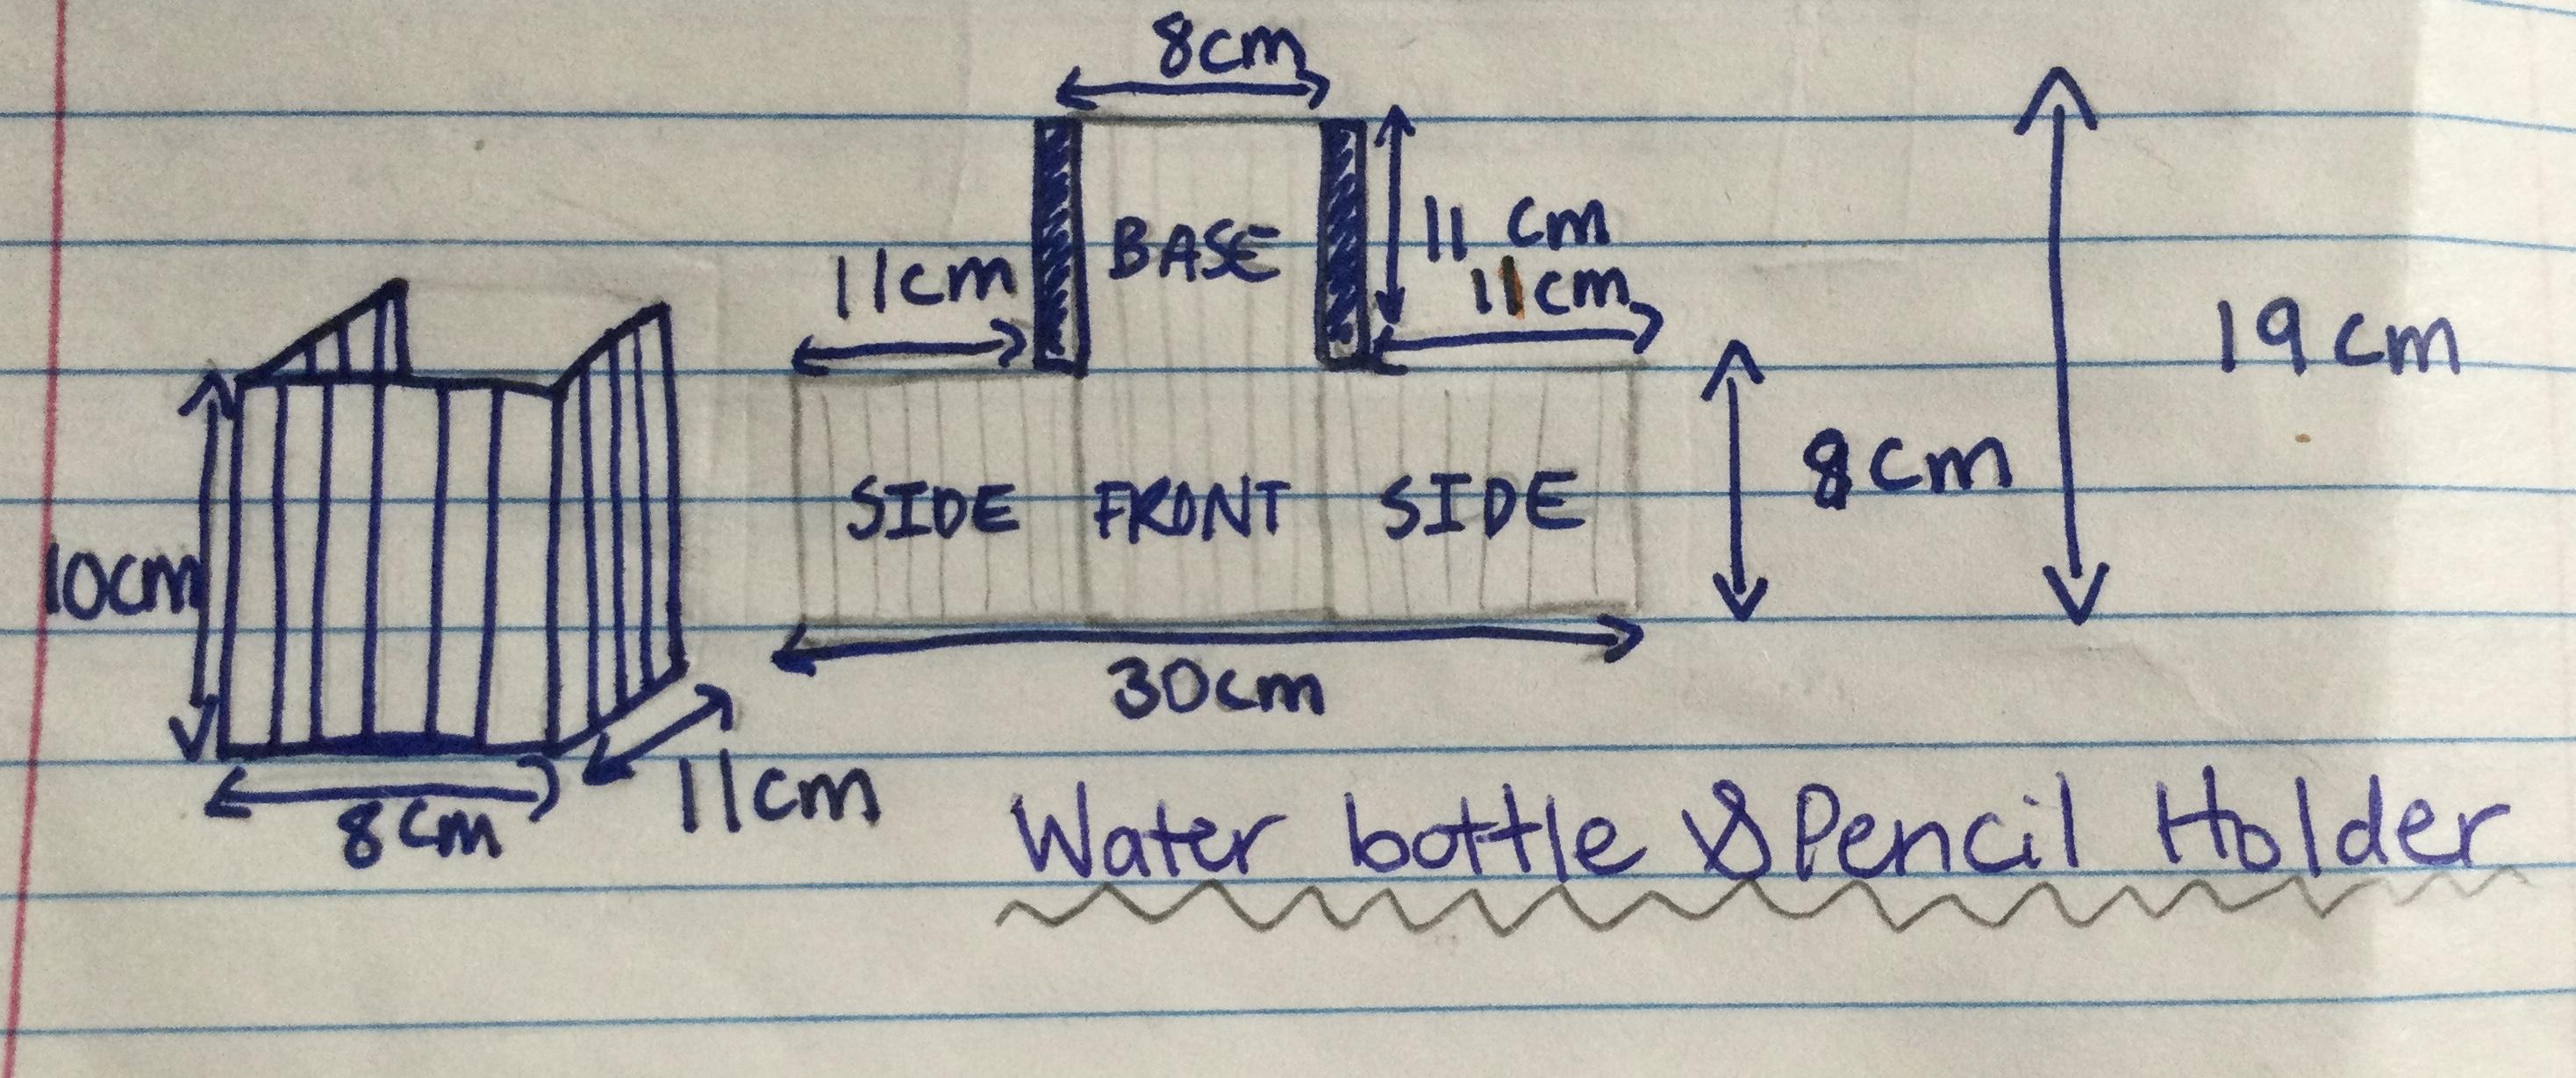 8cm
BASE
11 cm
11cm
11cm
19cm
10cm
SIDE FRONT SIDE
8cm
30cm
8cm
11cm
Water bottle & Pencil Holder